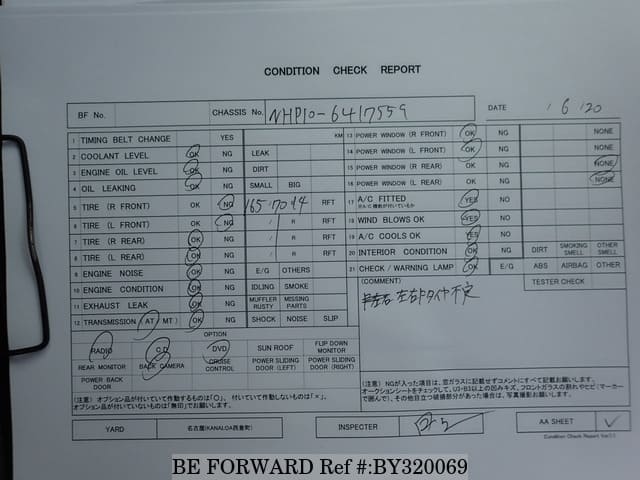 CONDITION CHECK REPORT
BF No. CHASSIS No. NHP10-6417559 DATE 6 / 20
1 TIMING BELT CHANGE YES KM
2 COOLANT LEVEL OK NG LEAK
3 ENGINE OIL LEVEL OK NG DIRT
4 OIL LEAKING OK NG SMALL BIG
5 TIRE (R FRONT) OK NG 165/70 14 RFT
6 TIRE (L FRONT) OK NG / R RFT
7 TIRE (R REAR) OK NG / R RFT
8 TIRE (L REAR) OK NG / R RFT
9 ENGINE NOISE OK NG E/G OTHERS
10 ENGINE CONDITION OK NG IDLING SMOKE
11 EXHAUST LEAK OK NG MUFFLER RUSTY MISSING PARTS
12 TRANSMISSION (AT MT) OK NG SHOCK NOISE SLIP
OPTION
RADIO C.D DVD SUN ROOF FLIP DOWN MONITOR
REAR MONITOR BACK CAMERA CRUISE CONTROL POWER SLIDING DOOR (LEFT) POWER SLIDING DOOR (RIGHT)
POWER BACK DOOR
(注意) オプション品が付いていて作動するものは「○」、付いていて作動しないものは「×」、
オプション品が付いていないものは「無印」でお願いします。
13 POWER WINDOW (R FRONT) OK NG NONE
14 POWER WINDOW (L FRONT) OK NG
15 POWER WINDOW (R REAR) OK NG NONE
16 POWER WINDOW (L REAR) OK NG NONE
17 A/C FITTED YES NO
※A/C機能が付いているか
18 WIND BLOWS OK YES NO
19 A/C COOLS OK YES NO
20 INTERIOR CONDITION OK NG DIRT SMOKING SMELL OTHER SMELL
21 CHECK / WARNING LAMP OK E/G ABS AIRBAG OTHER
(COMMENT) TESTER CHECK
左右Fタイヤ不定
(注意) NGが入った項目は、窓ガラスに記載せずコメントにすべて記載お願いします。
オークションシートをチェックして、U3・B3以上の凹みキズ、フロントガラスの割れやヒビ(マーカー
で囲んで)、その他目立つ破損部分があった場合は、写真撮影お願いします。
YARD 名古屋(KANALOA西倉町) INSPECTER AA SHEET ✓
Condition Check Report Ver
BE FORWARD Ref #:BY320069